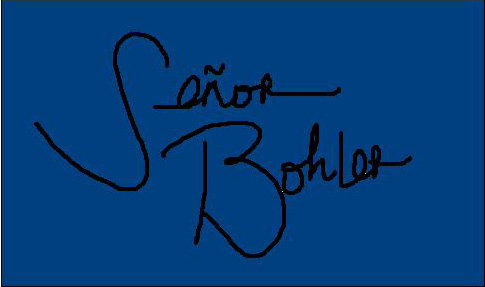 Señor
Bohler